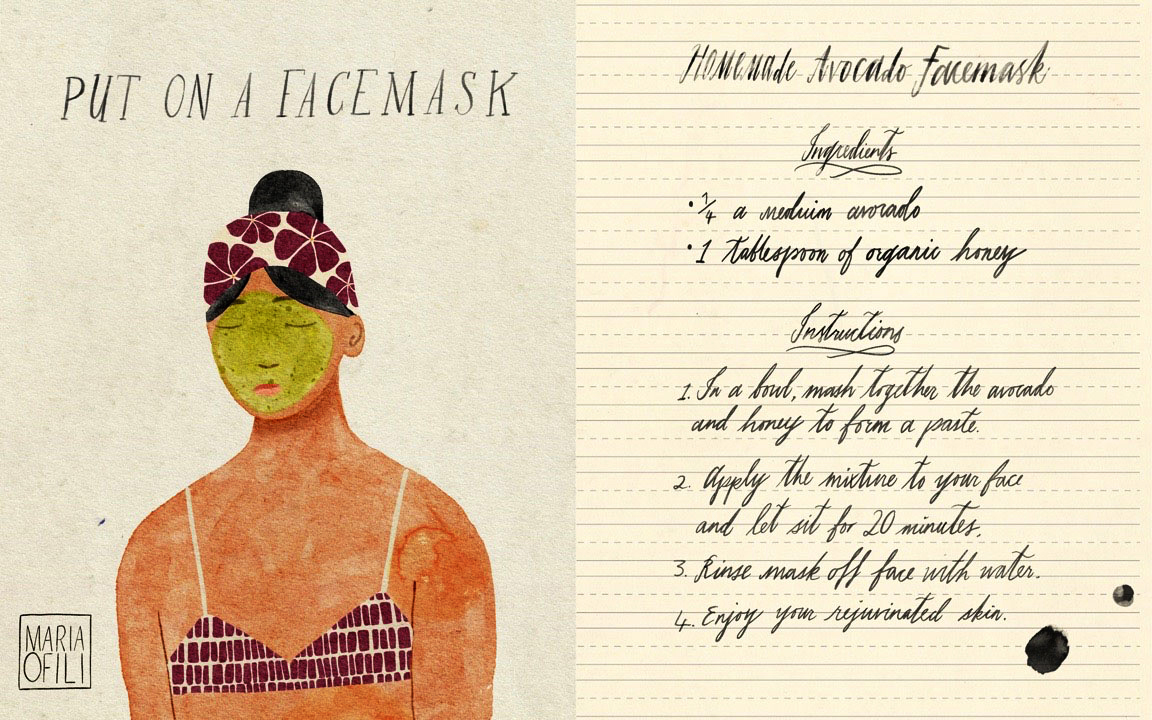 PUT ON A FACEMASK
MARIA
OFILI
Homemade Avocado Facemask
Ingredients
• 1/4 a medium avocado
• 1 tablespoon of organic honey
Instructions
1. In a bowl, mash together the avocado
and honey to form a paste.
2. Apply the mixture to your face
and let sit for 20 minutes.
3. Rinse mask off face with water.
4. Enjoy your rejuvinated skin.